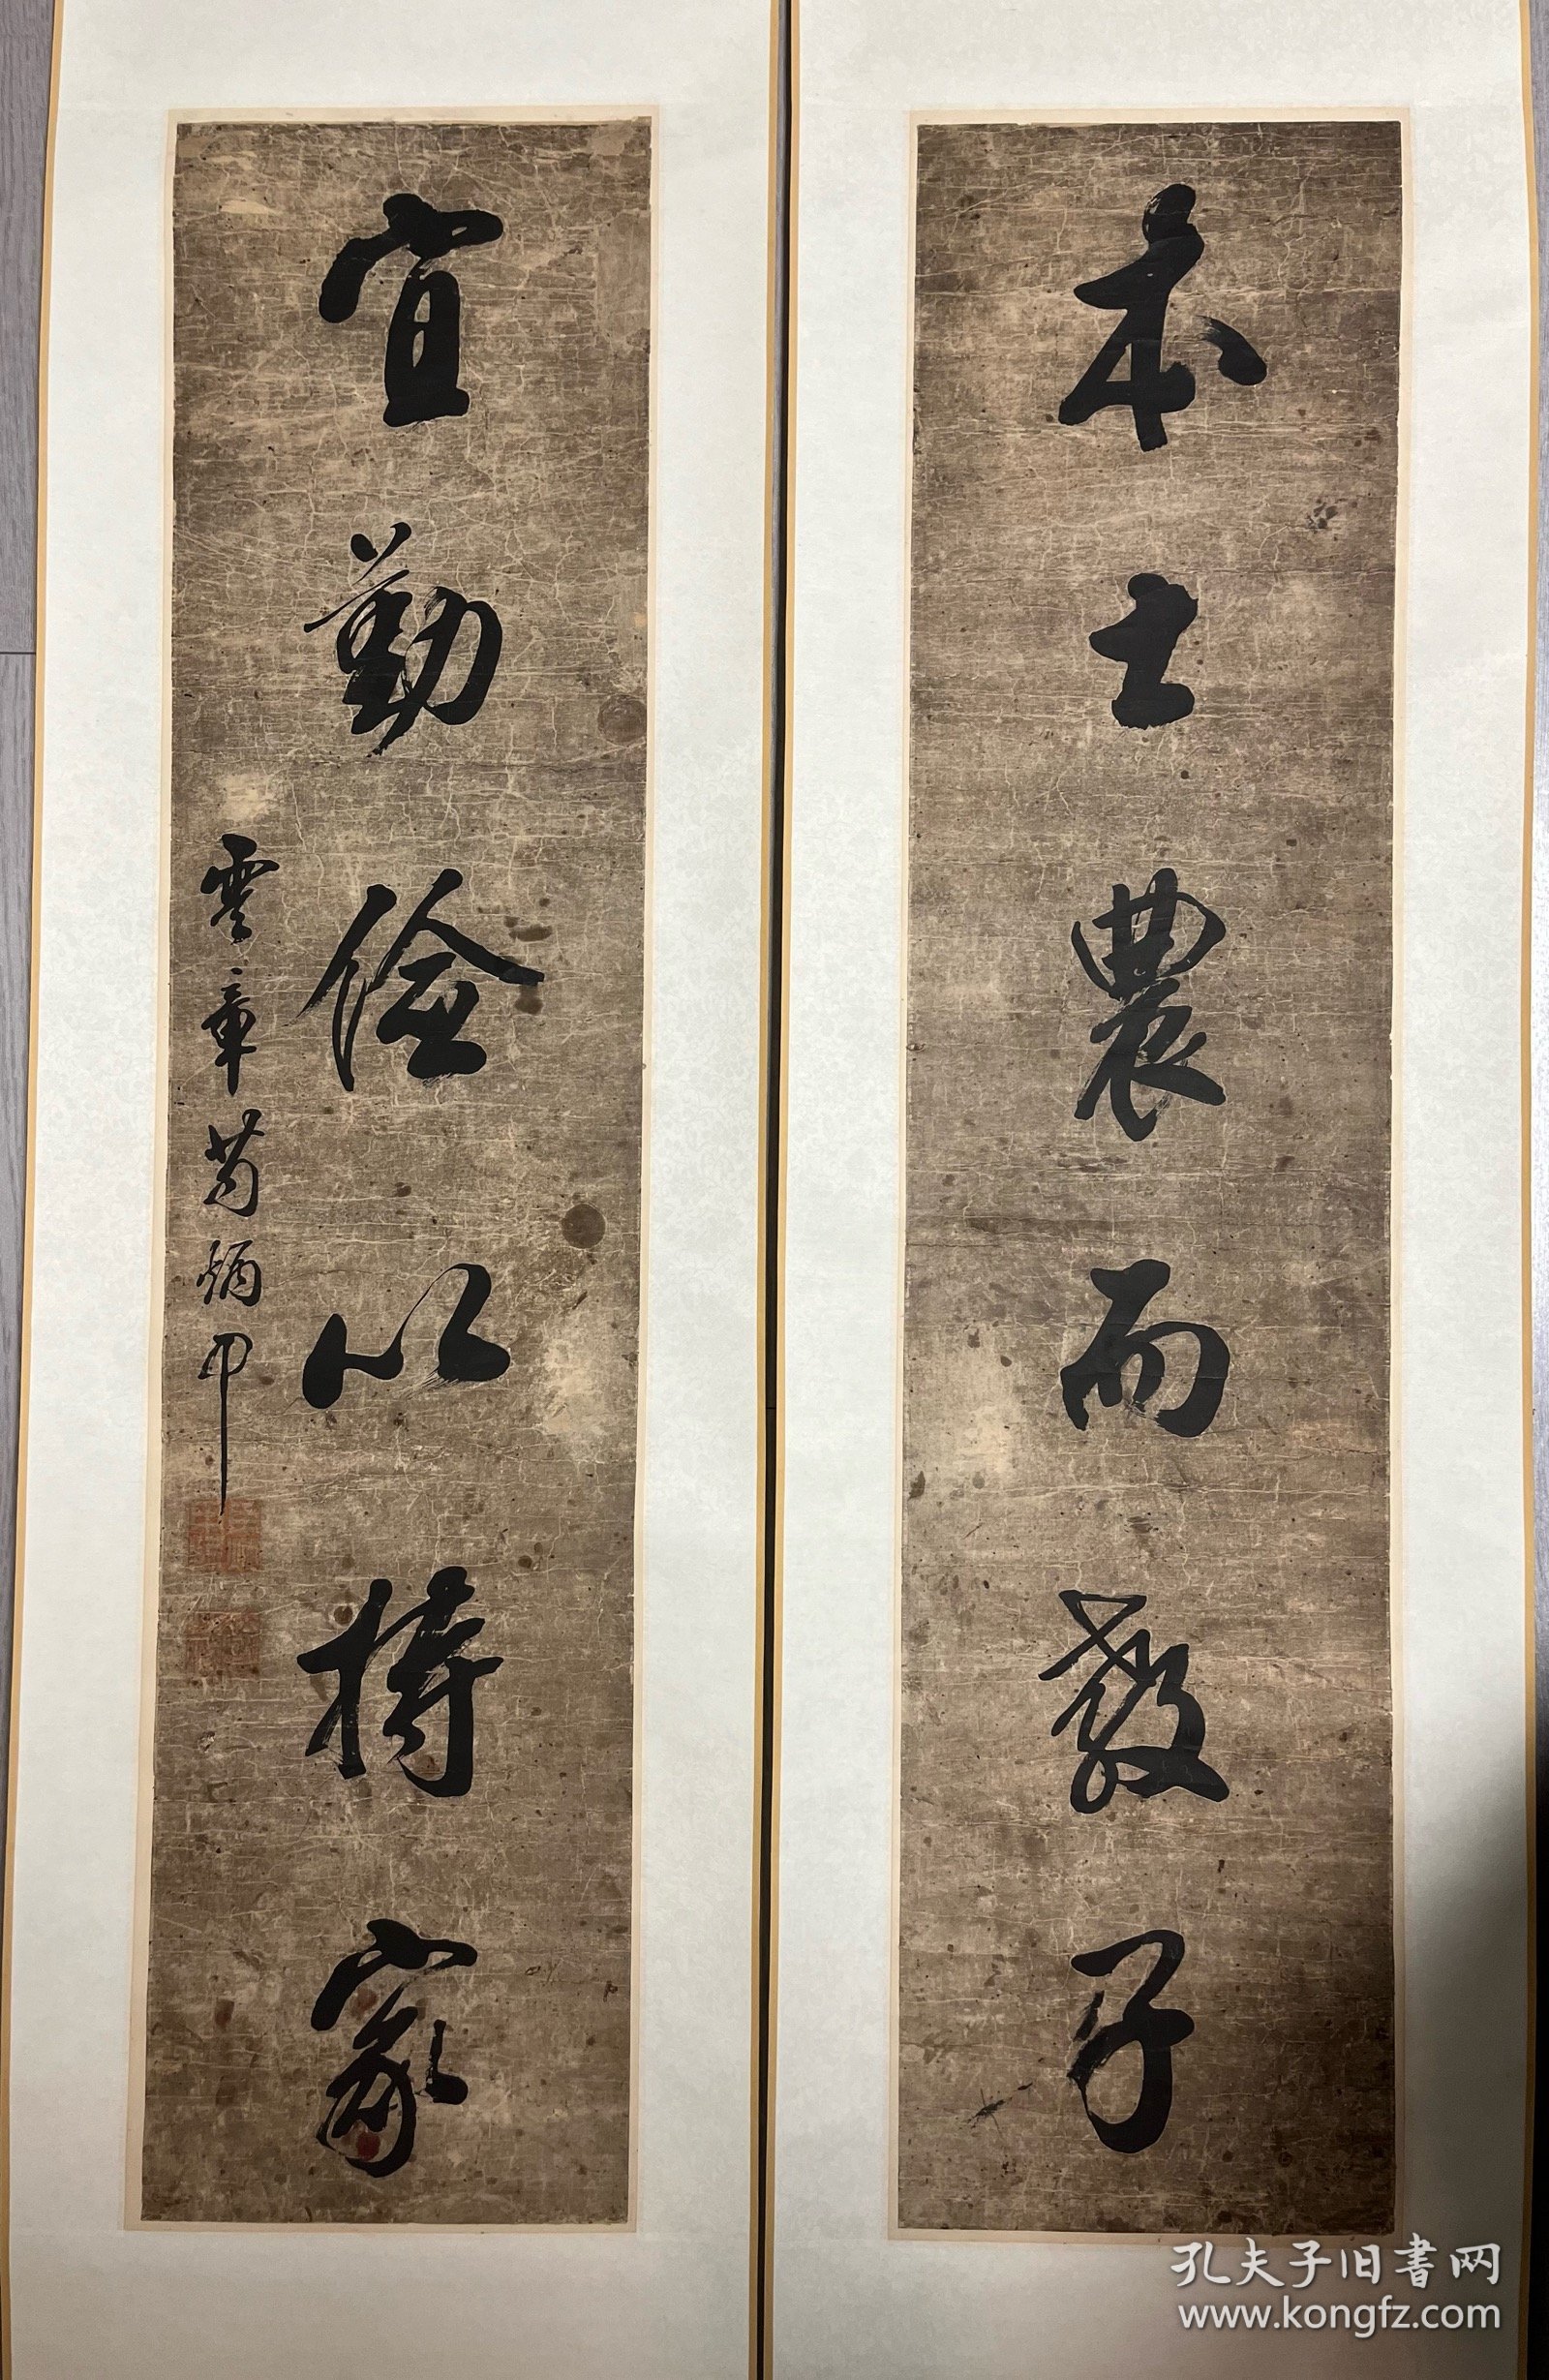 本士農而教子
宜勤儉以持家
雲章苟炳中
孔夫子旧書网
www.kongfz.com